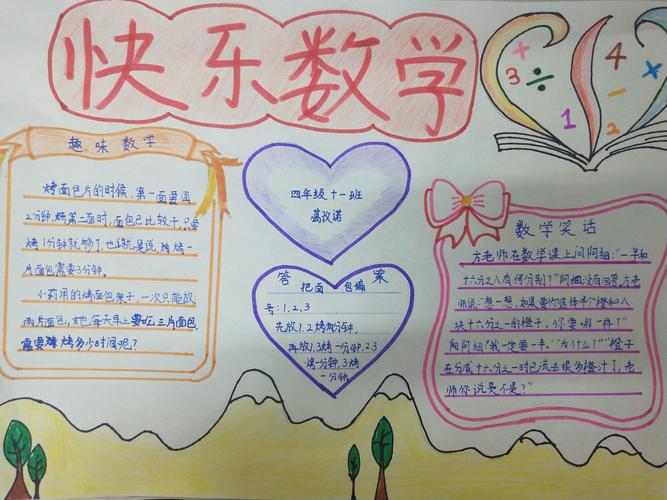 快乐数学
3 + ÷ 1 4 × - 2
趣味数学
烤面包片的时候,第一面要困
2分钟,烤第二面时,面包已比较干,只要
烤1分钟就够了,也就是说,烤烤一
片面包需要3分钟。
小莉用的烤面包架子,一次只能放
两片面包,她每天早上要吃三片面包,
需要烤多少时间呢?
四年级十一班
葛孜诺
答案
把面包编
号:1.2.3
先放1.2烤两分钟,
再放1.3烤一分钟.2.3
烤一分钟.3烤
一分钟
数学笑话
方老师在数学课上问阿细:“一半和
十六分之八有何分别?”阿细没有回答,方老
师说:“想一想,如果要你选择半个橙和八
块十六分之一的橙子,你要哪一样?”
阿细:“我一定要一半。”“为什么?”“橙子
在分成十六分之一时已流去很多橙汁了,老
师你说是不是?”